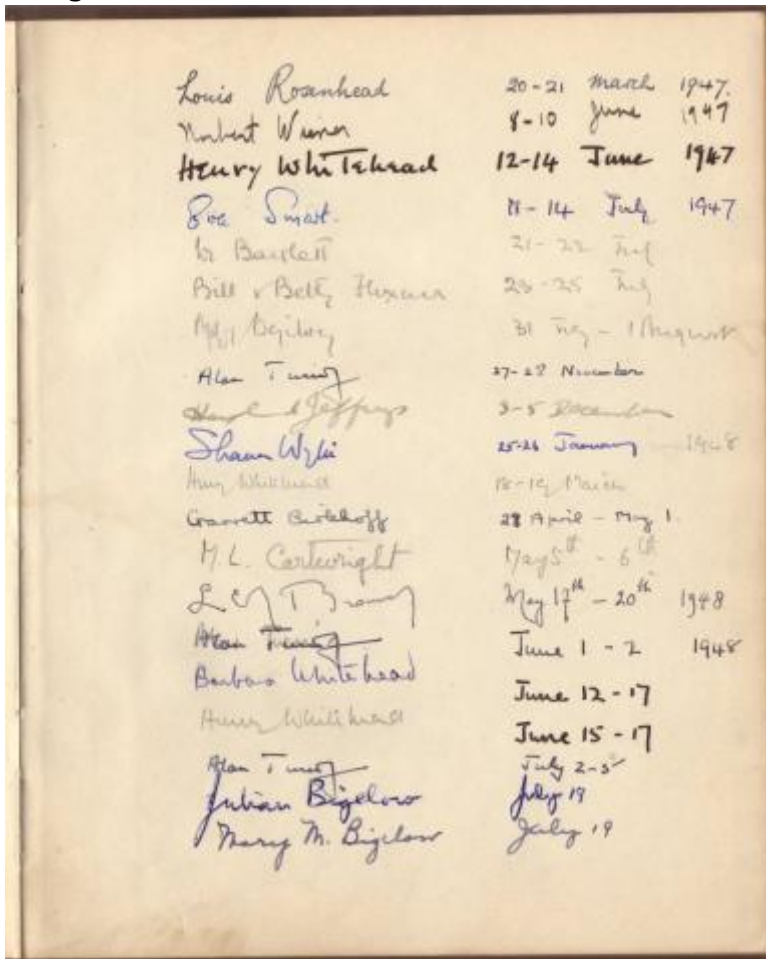 Louis Rosenhead 20-21 March 1947.
Norbert Wiener 8-10 June 1947
Henry Whitehead 12-14 June 1947
Eva Smart. 11-14 July 1947
Bartlett 21-22 July
Bill & Betty Flexner 23-25 July
31 July - 1 August
Alan Turing 27-28 November
Jeffreys 3-5 December
Shaun Wylie 25-26 January 1948
Henry Whitehead 18-19 March
Garrett Birkhoff 28 April - May 1.
M. L. Cartwright May 5th - 6th
May 17th - 20th 1948
Alan Turing June 1 - 2 1948
Barbara Whitehead June 12-17
Henry Whitehead June 15-17
Alan Turing July 2-5
Julian Bigelow July 19
Mary M. Bigelow July 19